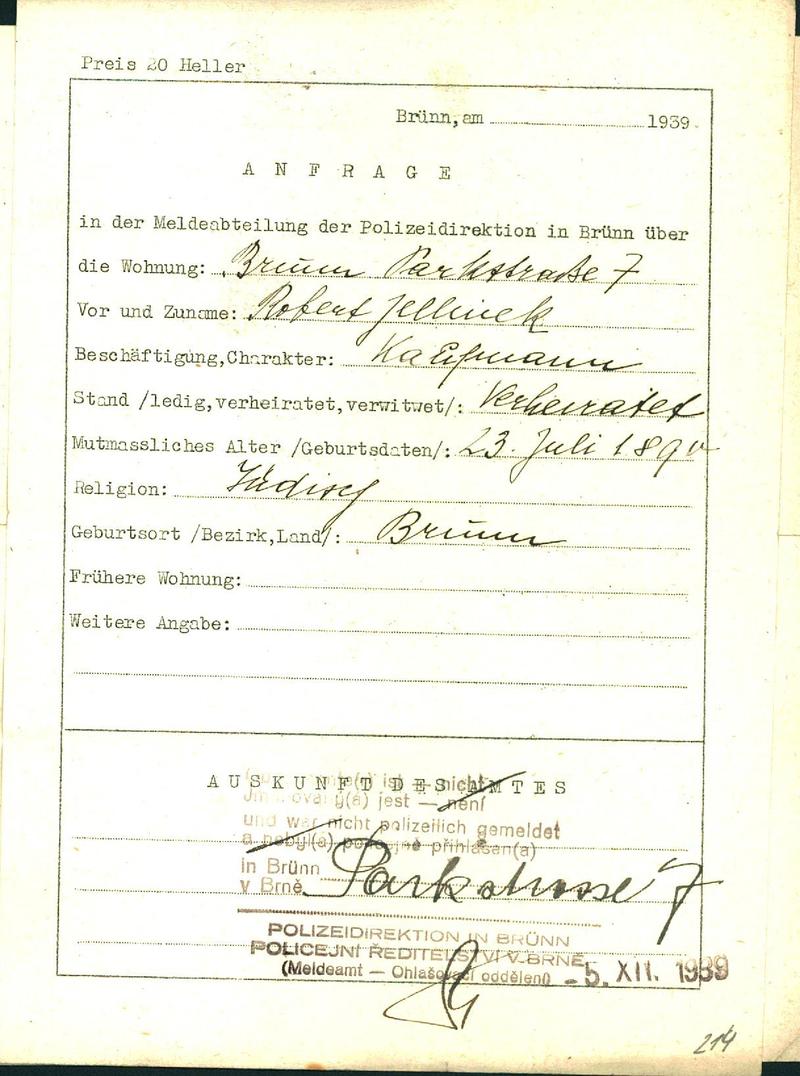 Preis 20 Heller
Brünn, am 1939.
ANFRAGE
in der Meldeabteilung der Polizeidirektion in Brünn über
die Wohnung: Brünn Parkstraße 7
Vor und Zuname: Robert Jellinek
Beschäftigung, Charakter: Kaufmann
Stand /ledig, verheiratet, verwitwet/: Verheiratet
Mutmassliches Alter /Geburtsdaten/: 23. Juli 189
Religion: Jüdisch
Geburtsort /Bezirk, Land/: Brünn
Frühere Wohnung:
Weitere Angabe:
AUSKUNFT DES AMTES
ist — nicht
(á) jest — není
und war nicht polizeilich gemeldet
a nebyl(a) policejně přihlášen(a)
in Brünn
v Brně Parkstrasse 7
POLIZEIDIREKTION IN BRÜNN
POLICEJNÍ ŘEDITELSTVÍ V BRNĚ
(Meldeamt — Ohlašovací oddělení) - 5. XII. 1939
214